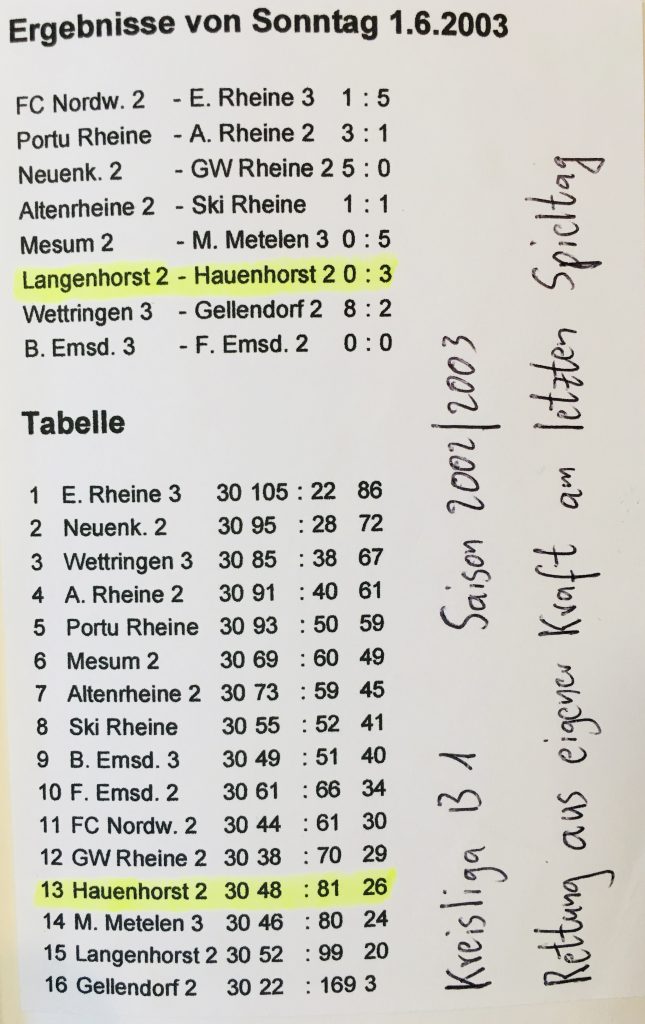 Ergebnisse von Sonntag 1.6.2003
FC Nordw. 2 - E. Rheine 3 1 : 5
Portu Rheine - A. Rheine 2 3 : 1
Neuenk. 2 - GW Rheine 2 5 : 0
Altenrheine 2 - Ski Rheine 1 : 1
Mesum 2 - M. Metelen 3 0 : 5
Langenhorst 2 - Hauenhorst 2 0 : 3
Wettringen 3 - Gellendorf 2 8 : 2
B. Emsd. 3 - F. Emsd. 2 0 : 0
Tabelle
1 E. Rheine 3 30 105 : 22 86
2 Neuenk. 2 30 95 : 28 72
3 Wettringen 3 30 85 : 38 67
4 A. Rheine 2 30 91 : 40 61
5 Portu Rheine 30 93 : 50 59
6 Mesum 2 30 69 : 60 49
7 Altenrheine 2 30 73 : 59 45
8 Ski Rheine 30 55 : 52 41
9 B. Emsd. 3 30 49 : 51 40
10 F. Emsd. 2 30 61 : 66 34
11 FC Nordw. 2 30 44 : 61 30
12 GW Rheine 2 30 38 : 70 29
13 Hauenhorst 2 30 48 : 81 26
14 M. Metelen 3 30 46 : 80 24
15 Langenhorst 2 30 52 : 99 20
16 Gellendorf 2 30 22 : 169 3
Kreisliga B 1 Saison 2002/2003
Rettung aus eigener Kraft am letzten Spieltag